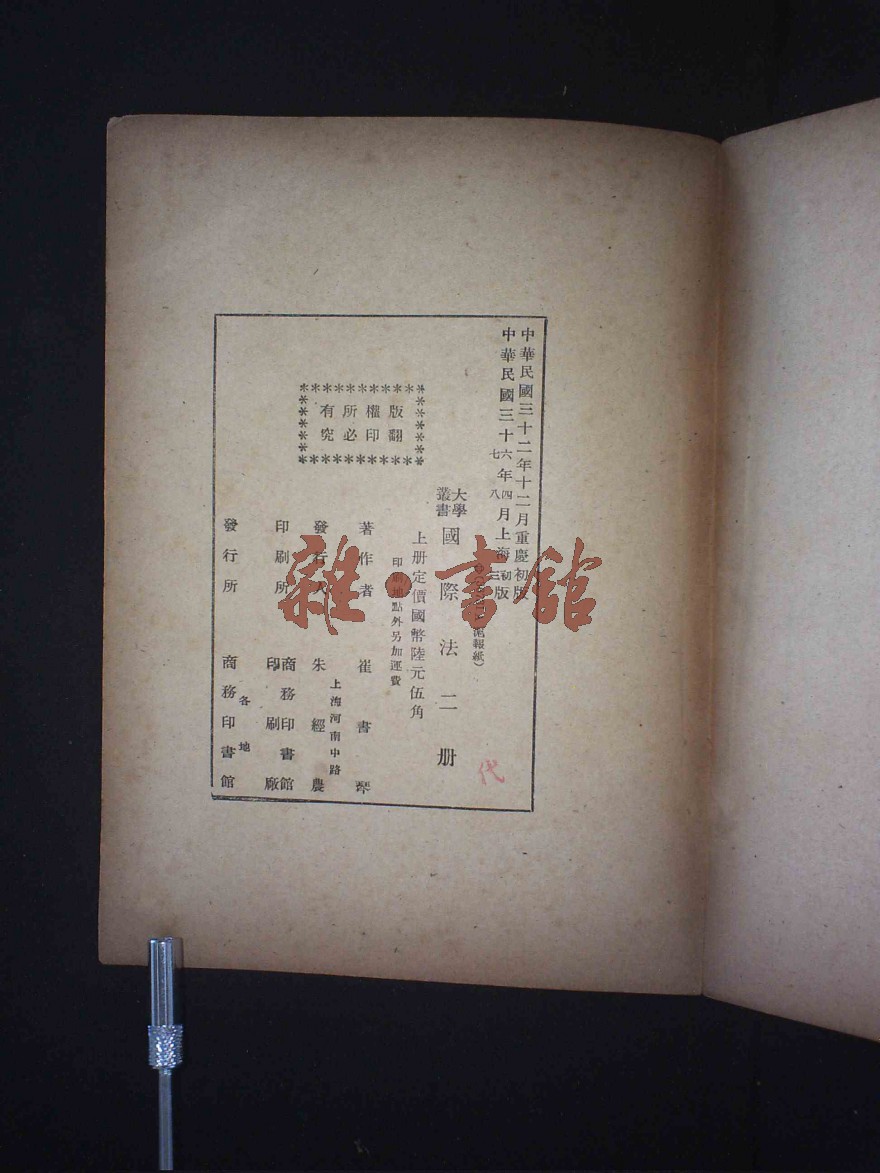 中華民國三十二年十二月重慶初版
中華民國三十六年四月上海初版
七 八 三
滬報紙）
大學叢書 國際法二册
上册定價國幣陸元伍角
印刷地點外另加運費
版權所有
翻印必究
著作者 崔書琴
發行人 朱經農
上海河南中路
印刷所 商務印書館印刷廠
各地
發行所 商務印書館
代
雜·書館